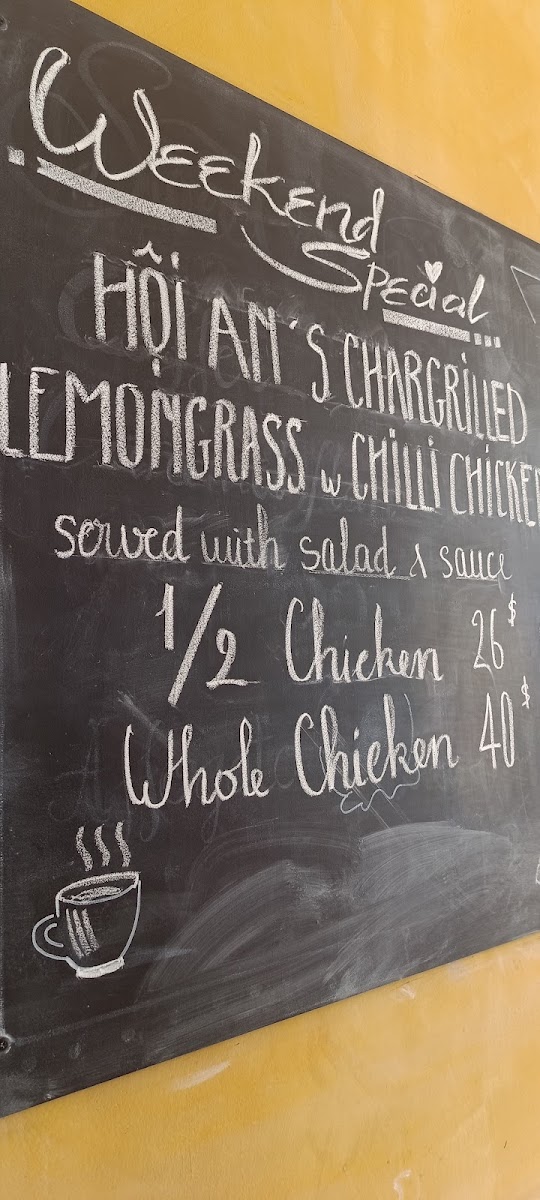 Weekend
Special
HỘI AN'S CHARGRILLED
LEMONGRASS w CHILLI CHICKEN
served with salad & sauce
1/2 Chicken 26$
Whole Chicken 40$